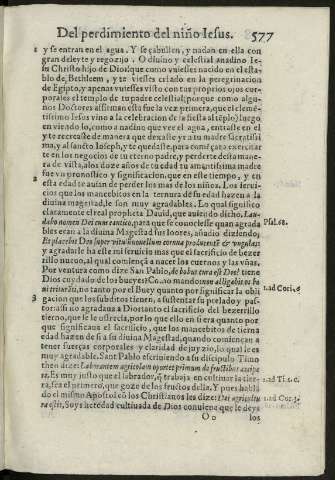 Del perdimiento del niño Iesus. 577
2 y se entran en el agua. Y se çabullen, y nadan en ella con
gran deleyte y regozijo. O diuino y celestial anadino Ie-
su Christo hijo de Dios: que como vuiesses nacido en el esta-
blo de Bethleem, y te viesses criado en la peregrinacion
de Egipto, y apenas vuiesses visto con tus propios ojos cor-
porales el templo de tu padre celestial: porque como algu-
nos Doctores afirman esta fue la vez primera, que el clemē-
tissimo Iesus vino a la celebracion de la fiesta al tēplo) luego
en viendo lo, como anadino que ver el agua, entraste en el
y te recreaste de manera que dexaste y a tu madre Sacratissi-
ma, y al sancto Ioseph, y te quedaste, para començar a exercitar
te en los negocios de tu eterno padre, y perderte desta mane-
ra de vista, a los doze años de tu edad tu amantissima madre
fue vn pronostico y significacion, que en este tiempo, y en
esta edad te auian de perder los mas de los niños. Los serui-
cios que los mancebitos en la ternura de su edad hazen a la
diuina magestad, le son muy agradables. Lo qual significo
claramente el real propheta Dauid, que auiendo dicho, Lau-
dabo nomen Dei cum cantico, para que se conociesse quan agrada
bles eran a la diuina Magestad sus loores, añadio diziendo,
Psal. 68.
Et placebit Deo super vitulum nouellum cornua producentē & vngulas:
y agradarle ha este mi seruicio mas que el sacrificio de bezer
rillo nueuo, al qual comiença a nacer los cuernos y las vñas.
Por ventura como dize San Pablo, de bobus cura est Deo? tiene
Dios cuydado de los bueyes? &c. no mando non alligabis os bo
ui trituranti, no tanto por el Buey quanto por significar la obli
1.ad Cori. 9
3 gacion que los subditos tienen, a sustentar su prelado y pas-
tor: assi no agradaua a Dios tanto el sacrificio del bezerrillo
tierno, que se le ofrecia, por lo que ello en si era quanto por
que significaua el sacrificio, que los mancebitos de tierna
edad hazen de si a su diuina Magestad, quando comiençan a
tener fuerças corporales y claridad de juyzio, lo qual le es
muy agradable. Sant Pablo escriuiendo a su dicipulo Timo
theo dize: Laborantem agricolam oportet primum de fructibus accipe
re, Es muy justo que el labrador, q̃ trabaja en cultiuar la tier-
ra, sea el primero, que goze de los fructos della. Y pues hablā
2.ad Ti. 2. c.
do el mismo Apostol cō los Christianos les dize: Dei agricultu
ra estis, Soys heredad cultiuada de Dios conuiene que le deys
1.ad Cor. 3.
Oo los